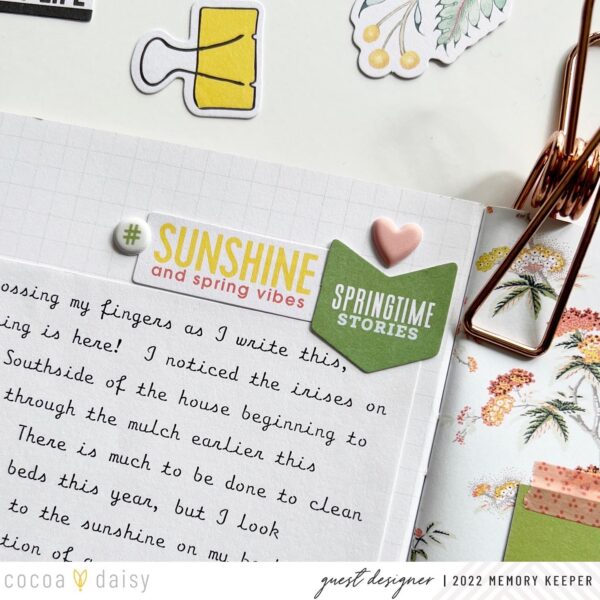 LIFE
#
SUNSHINE
and spring vibes
SPRINGTIME
STORIES
ossing my fingers as I write this,
ing is here! I noticed the irises on
Southside of the house beginning to
through the mulch earlier this
There is much to be done to clean
beds this year, but I look
to the sunshine on my
tion of
cocoa daisy
guest designer | 2022 MEMORY KEEPER